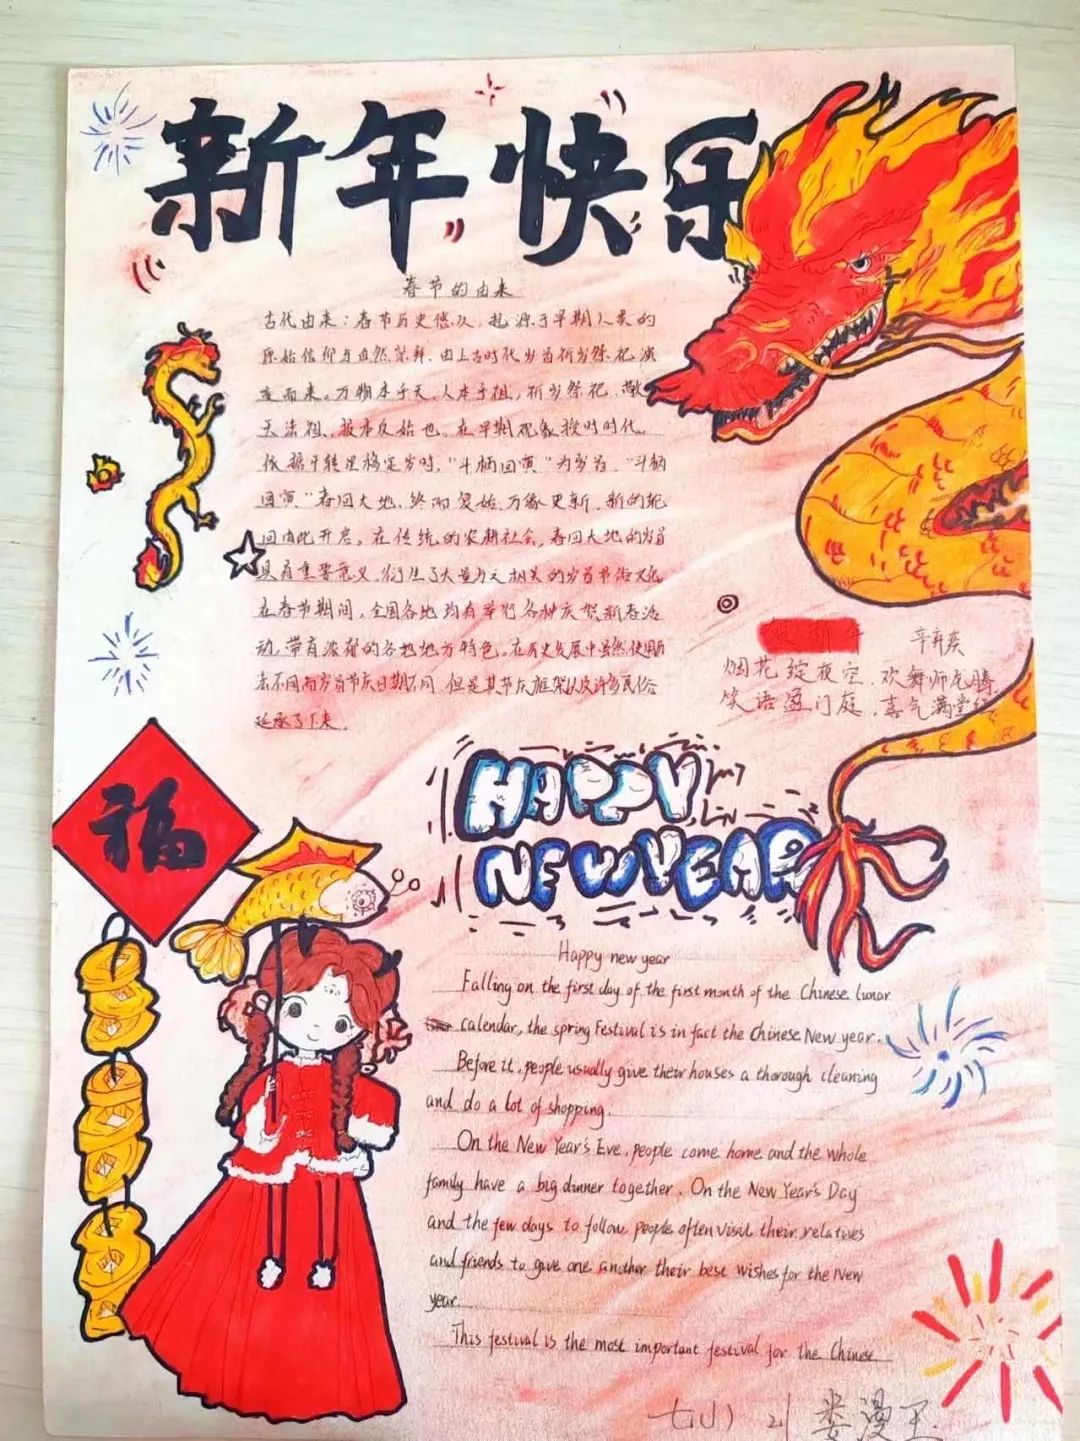 新年快乐
春节的由来
古代由来：春节历史悠久，起源于早期人类的
原始信仰与自然崇拜，由上古时代岁首祈岁祭祀演
变而来。万物本乎天、人本乎祖，祈岁祭祀、敬
天法祖，报本反始也。在早期观象授时时代，
依据斗转星移定岁时，“斗柄回寅”为岁首。“斗柄
回寅”春回大地，终而复始，万象更新，新的轮
回由此开启。在传统的农耕社会，春回大地的岁首
具有重要意义，衍生了大量与之相关的岁首节俗文化
在春节期间，全国各地均有举行各种庆贺新春活
动，带有浓郁的各地地方特色。在历史发展中虽然使用历
法不同而岁首节庆日期不同，但是其节庆框架以及许多民俗
延承了下来。
新年
辛弃疾
烟花绽夜空，欢舞师龙腾
笑语盈门庭，喜气满堂红
福
HAPPY
NEW YEAR
Happy new year
Falling on the first day of the first month of the Chinese lunar
calendar, the spring Festival is in fact the Chinese New year.
Before it, people usually give their houses a thorough cleaning
and do a lot of shopping.
On the New Year's Eve, people come home and the whole
family have a big dinner together. On the New Year's Day
and the few days to follow, people often visit their relatives
and friends to give one another their best wishes for the New
year.
This festival is the most important festival for the Chinese
七(1) 21 娄漫